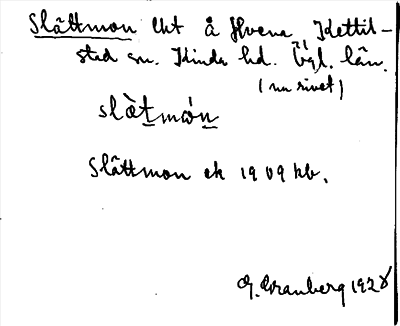 Slåttmon lht å Hvena, Kettil-
stad sn. Kinda hd. Ögl. län.
(nu rivet)
slàt món
Slåttmon ek 1909 kb.
G. Granberg 1928